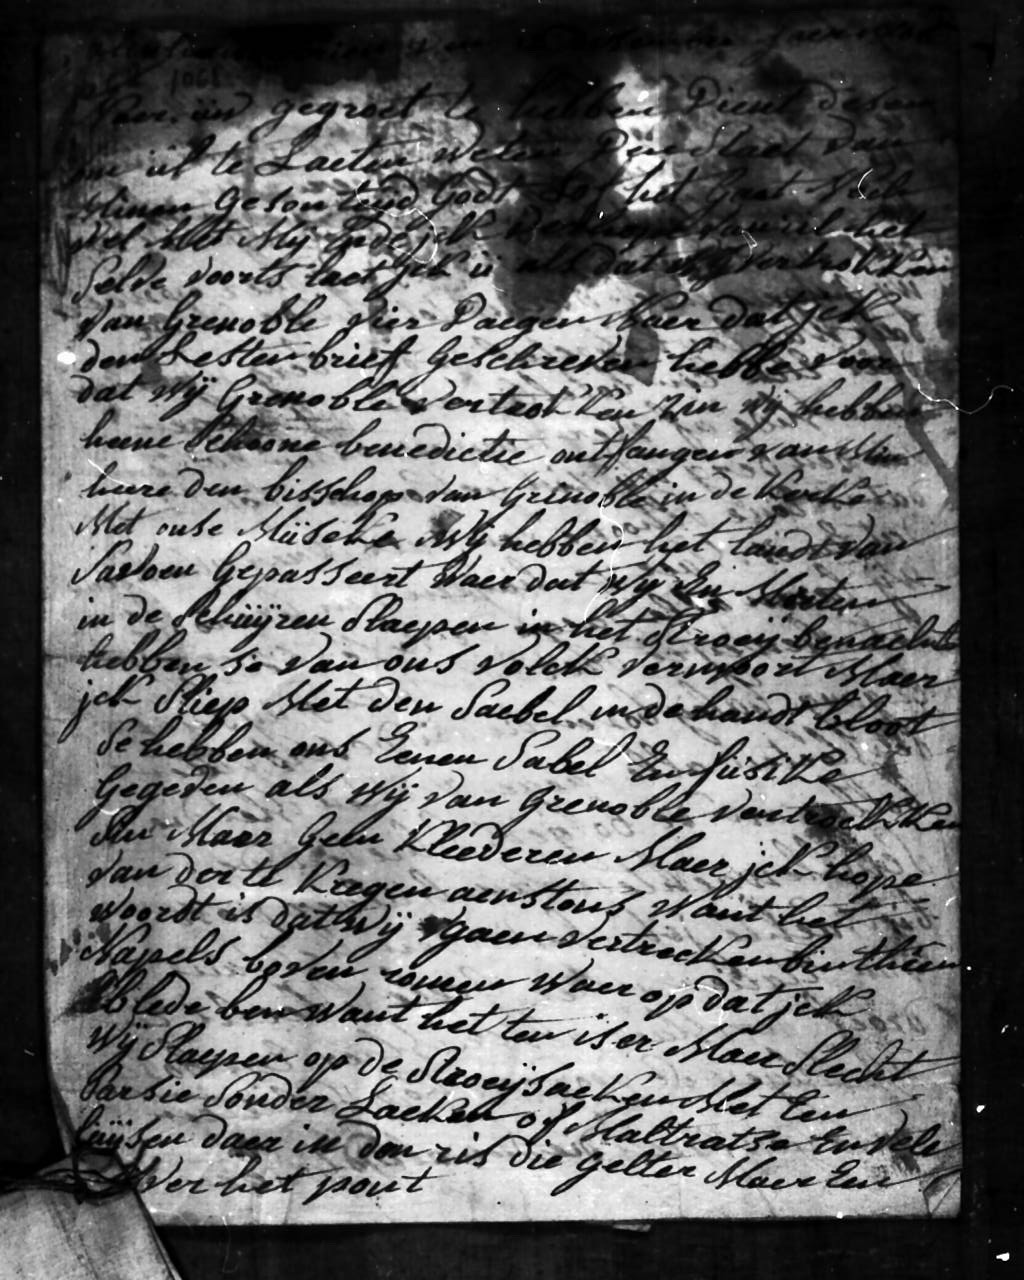 Vaer. uw gegroet te hebben Dient desen
om ul te Laeten weten Den staet van
Minen Gesontheid Godt Lof het Gaet Noch
wel Met Mij
selve voorts laet jck u als dat wij vertrocken
van Grenoble vier Daegen Naer dat jck
den Lesten brief Geschreven hebbe voor
dat wij Grenoble vertrokken zin wij hebben
heene schoone benedictie ontfangen van Min
heere den bisschop van Grenoble in de kerke
Met onse Museke Wij hebben het landt van
Savoen Gepasseert waer dat wij En Mosten
in de schuijren slaepen in het stroeij benachte
hebben se van ons volck vermoort Maer
jck sliep Met den saebel in de handt bloot
se hebben ons Eenen sabel En fusike
Gegeven als wij van Grenoble vertroekken
sin Maer Geen kleederen Maer jck hope
van der te kregen aenstons want het
woordt is dat wij gaen vertrecken bin thien
Napels boven romen waer op dat jck
blede ben want het ten is er Maer slecht
wij slaepen op de stroeijsacken Met Een
sarsie sonder Laeken of Maltratse En vele
luijsen daer in den ris die gelter Maer Een
het pont